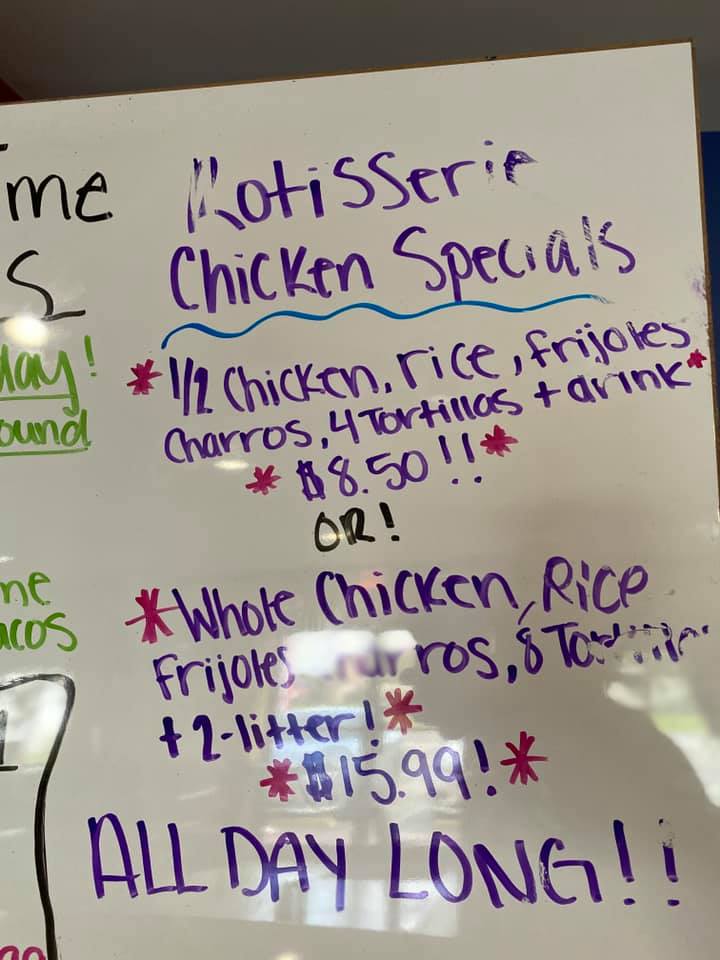 me
Rotisserie
S
Chicken Specials
day!
ound
*1/2 Chicken, rice, frijoles
charros, 4 Tortillas + drink*
*$8.50!!*
OR!
me
acos
*Whole Chicken, Rice
Frijoles charros, 8 Tortillas
+ 2-litter!*
1
*$15.99!*
ALL DAY LONG!!